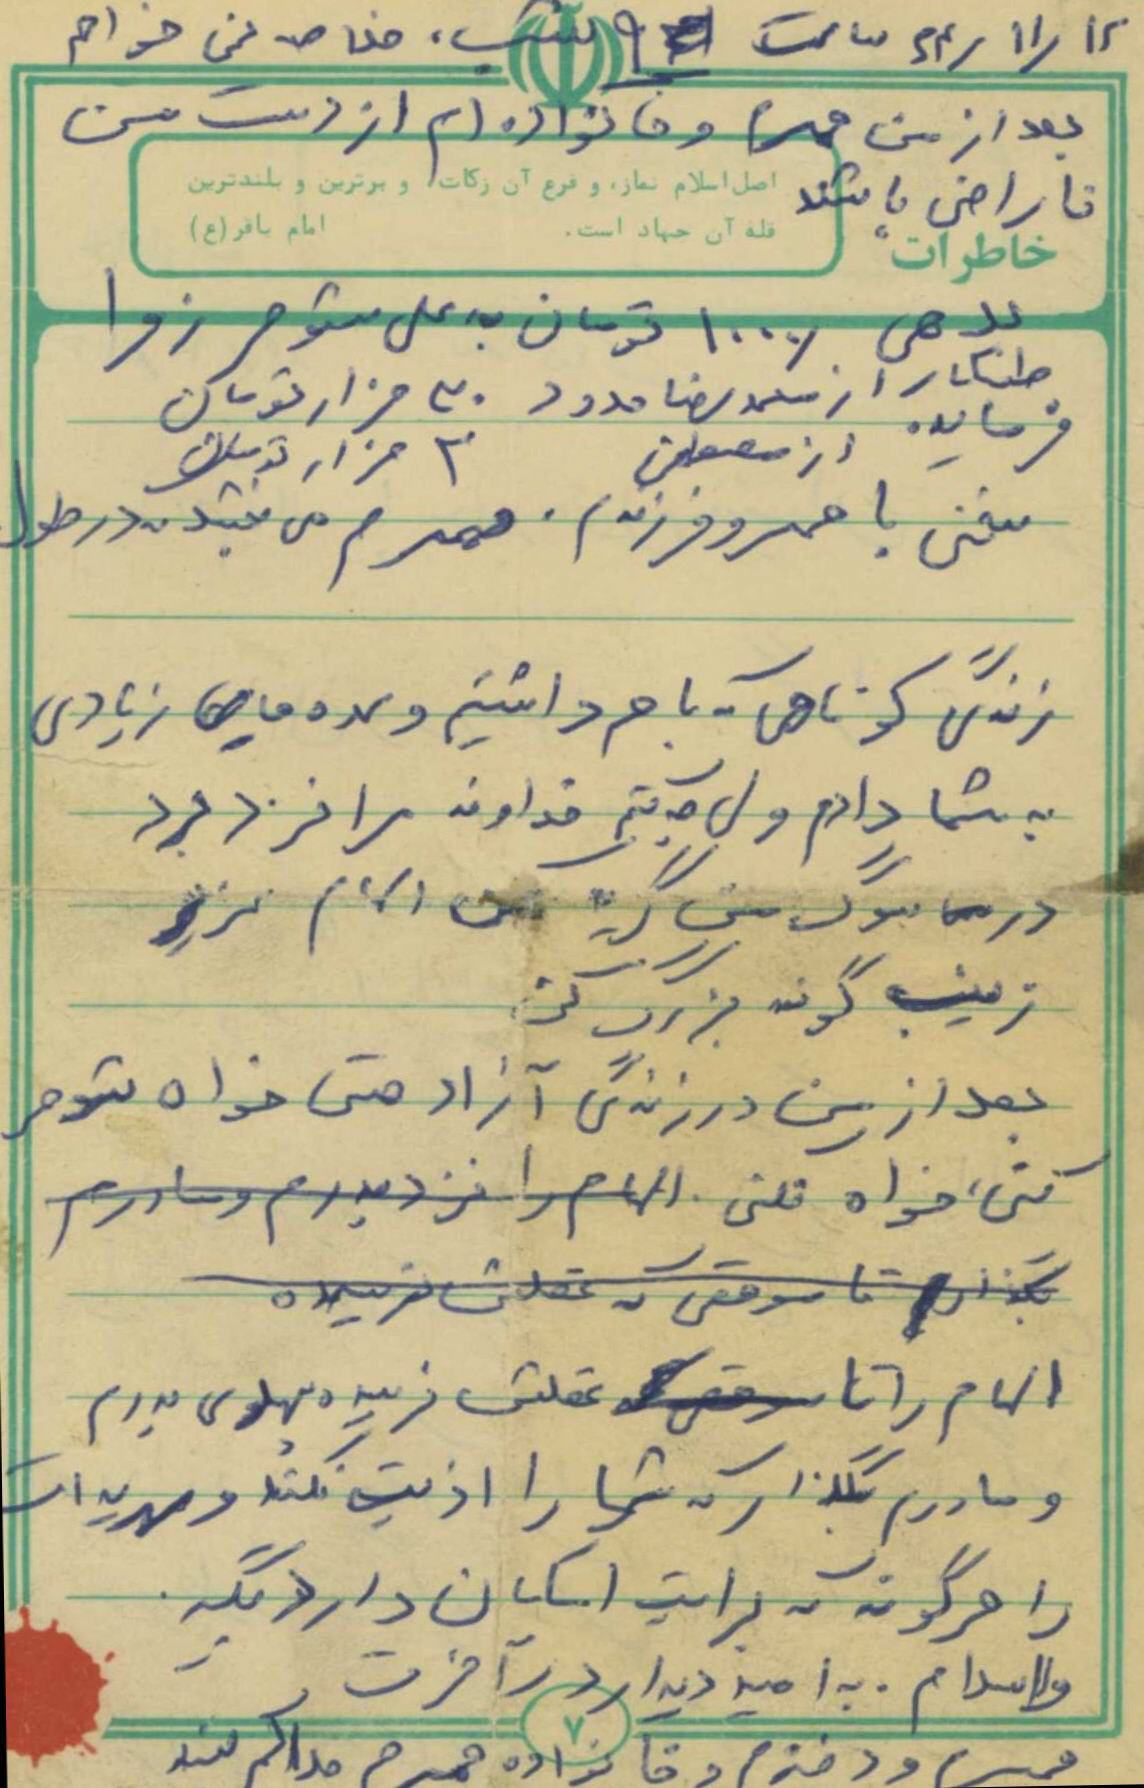 ۶۴/۱۱/۱۲ ساعت ۹ شب، خلاصه نمی خواهم
بعد از من همسرم و خانواده ام از دست من
ناراضی باشند
اصل اسلام نماز، و فرع آن زکات، و برترین و بلندترین
قله آن جهاد است.
امام باقر (ع)
خاطرات
بدهی ۱۰۰۰/ تومان به علی شوهر زهرا
طلبکار از محمدرضا حدود ۳۰ هزار تومان
فرمایید. از ۲ هزار تومان
سخنی با همسر و فرزندم. همسرم می بخشید در طول
زندگی کوتاهی که با هم داشتیم وعده های زیادی
به شما دادم ولی چه کنم خداوند مرا نزد خود
در سوگ من گریه مکن الهام عزیز
زینب گونه بزرگ کن.
بعد از من در زندگی آزاد هستی خواه شوهر
کنی، خواه نکنی. الهام را نزد پدرم و مادرم
بگذار تا موقعی که عقلش نرسیده
الهام را تا موقعی که عقلش نرسیده پهلوی پدرم
و مادرم بگذار که شما را اذیت نکند و مهریه ات
را هرگونه که برایت امکان دارد بگیر.
والسلام. به امید دیدار در آخرت
۷
همسرم و دخترم و خانواده همسرم حلالم کنند